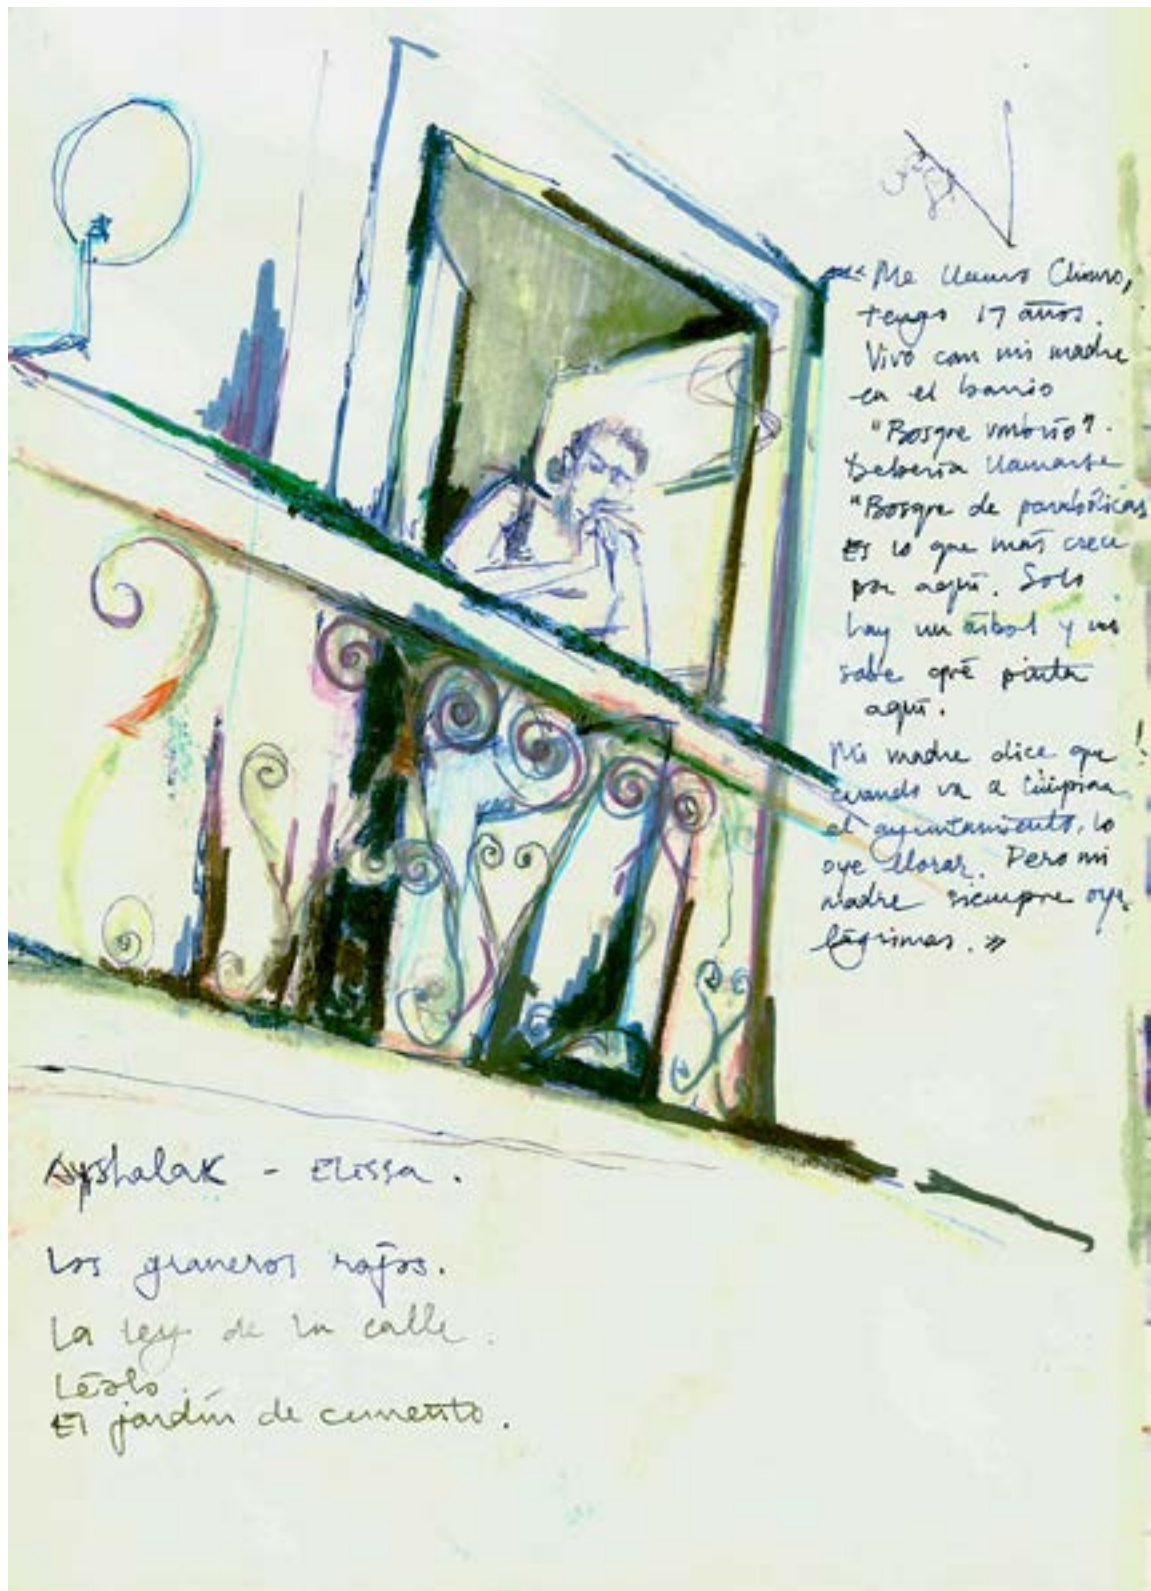 «Me llamo Chimo,
tengo 17 años.
Vivo con mi madre
en el barrio
"Bosque umbrío".
Debería llamarse
"Bosque de parabólicas
Es lo que más crece
por aquí. Solo
hay un árbol y no
sabe qué pinta
aquí.
Mi madre dice que
cuando va a limpiar
el ayuntamiento, lo
oye llorar. Pero mi
madre siempre oye
lágrimas.»
Ayshalak - Elissa.
Los graneros rojos.
La ley de la calle.
Léolo.
El jardín de cemento.